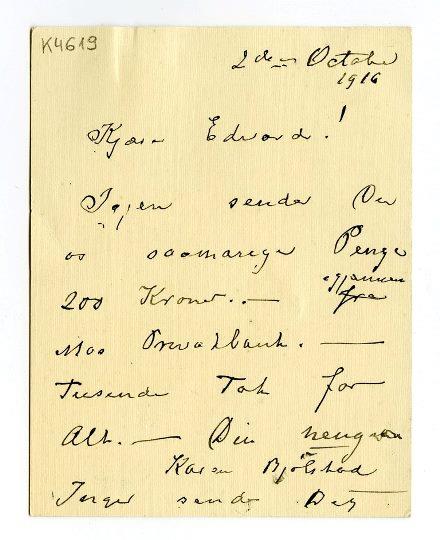 K4619
2den October
1916
Kjære Edvard!
Igjen sender Du
os saamange Penge
200 Kroner. — gjennem
fra
Mos Privatbank. —
Tusende Tak for
Alt. — Din
Karen Bjölstad
Inger send Dig